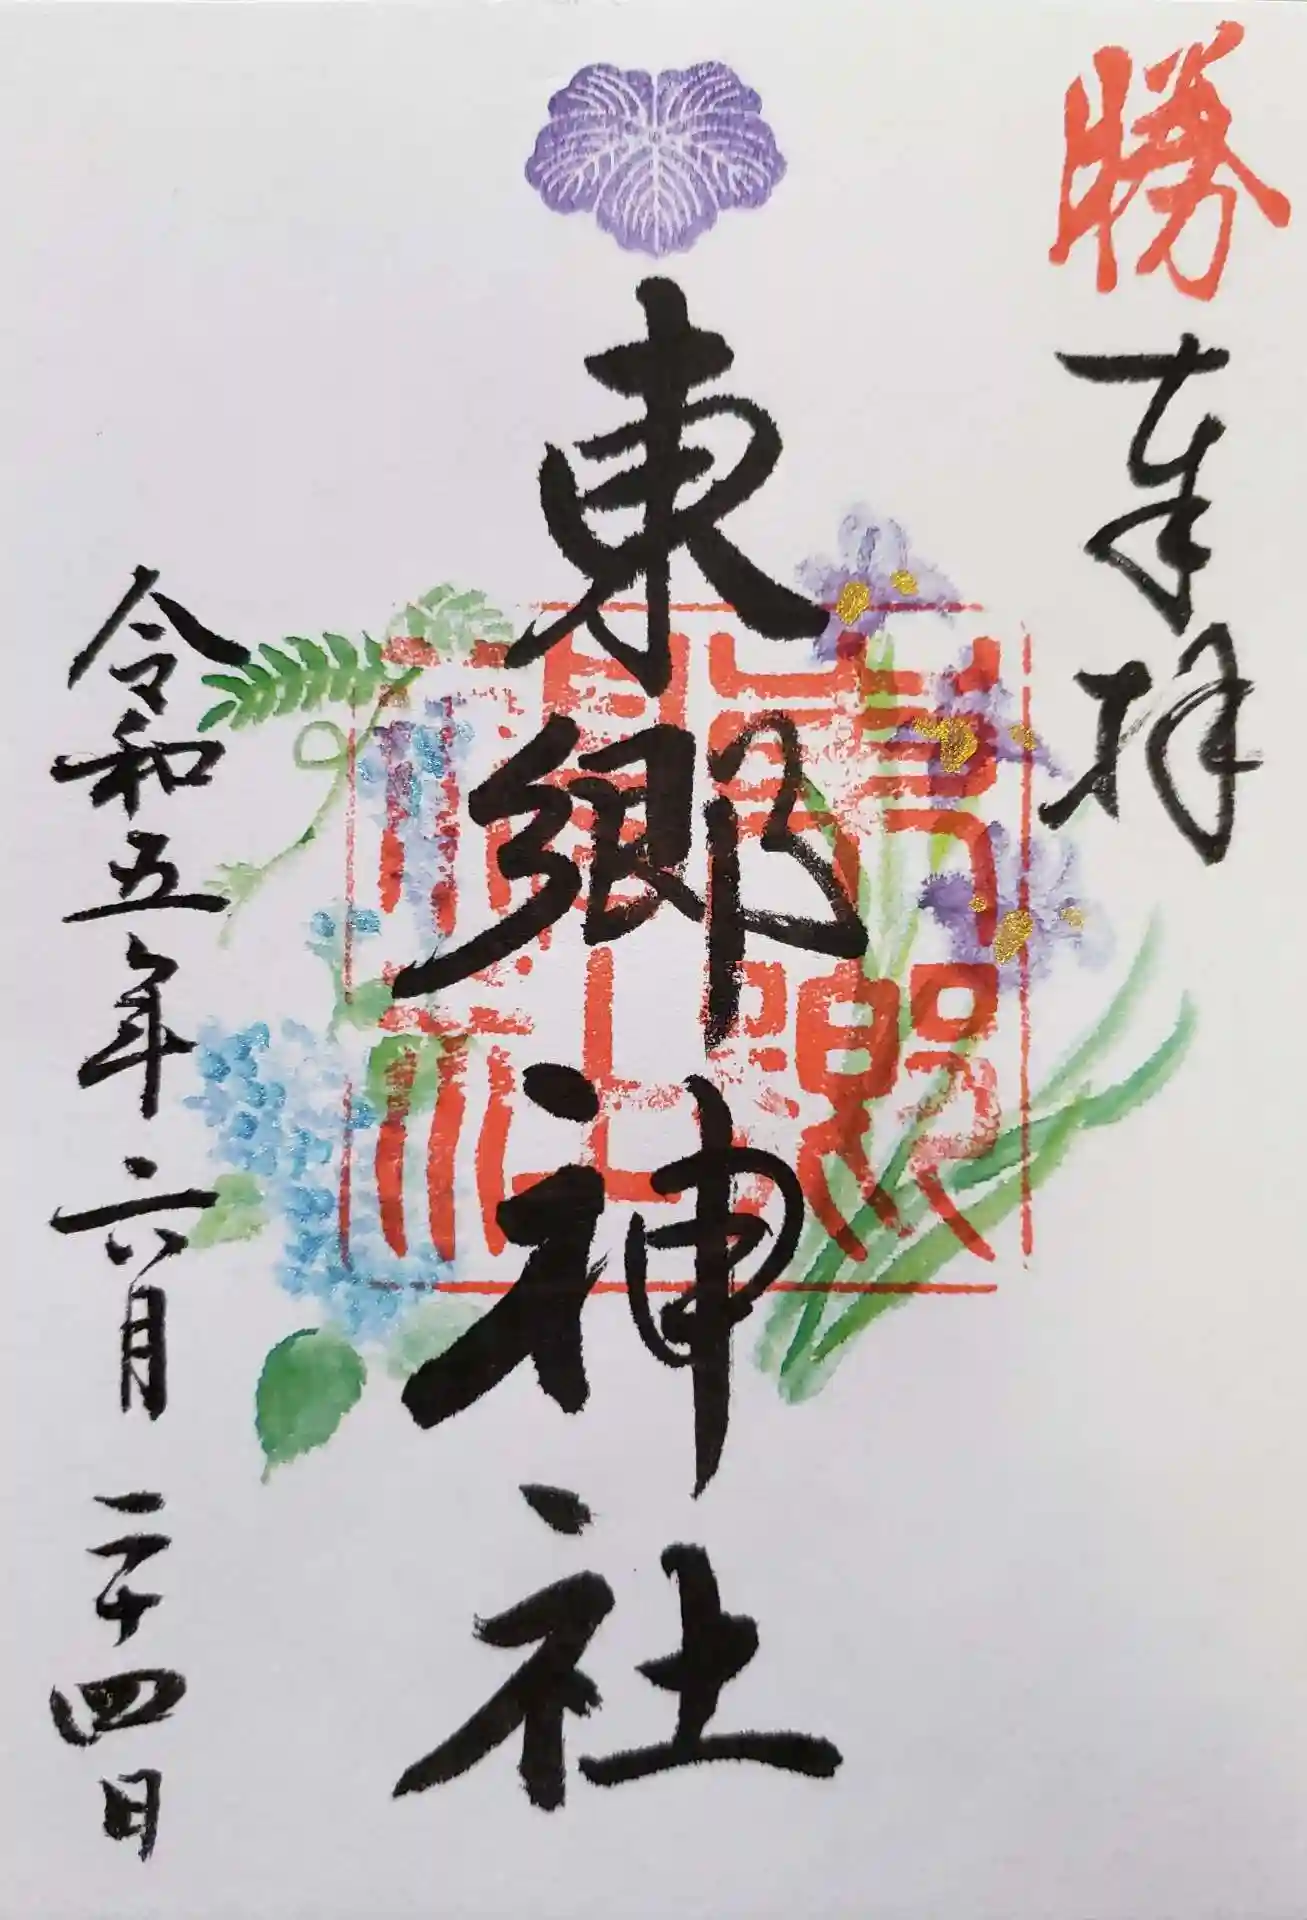 勝
奉拝
東郷神社
令和五年六月二十四日